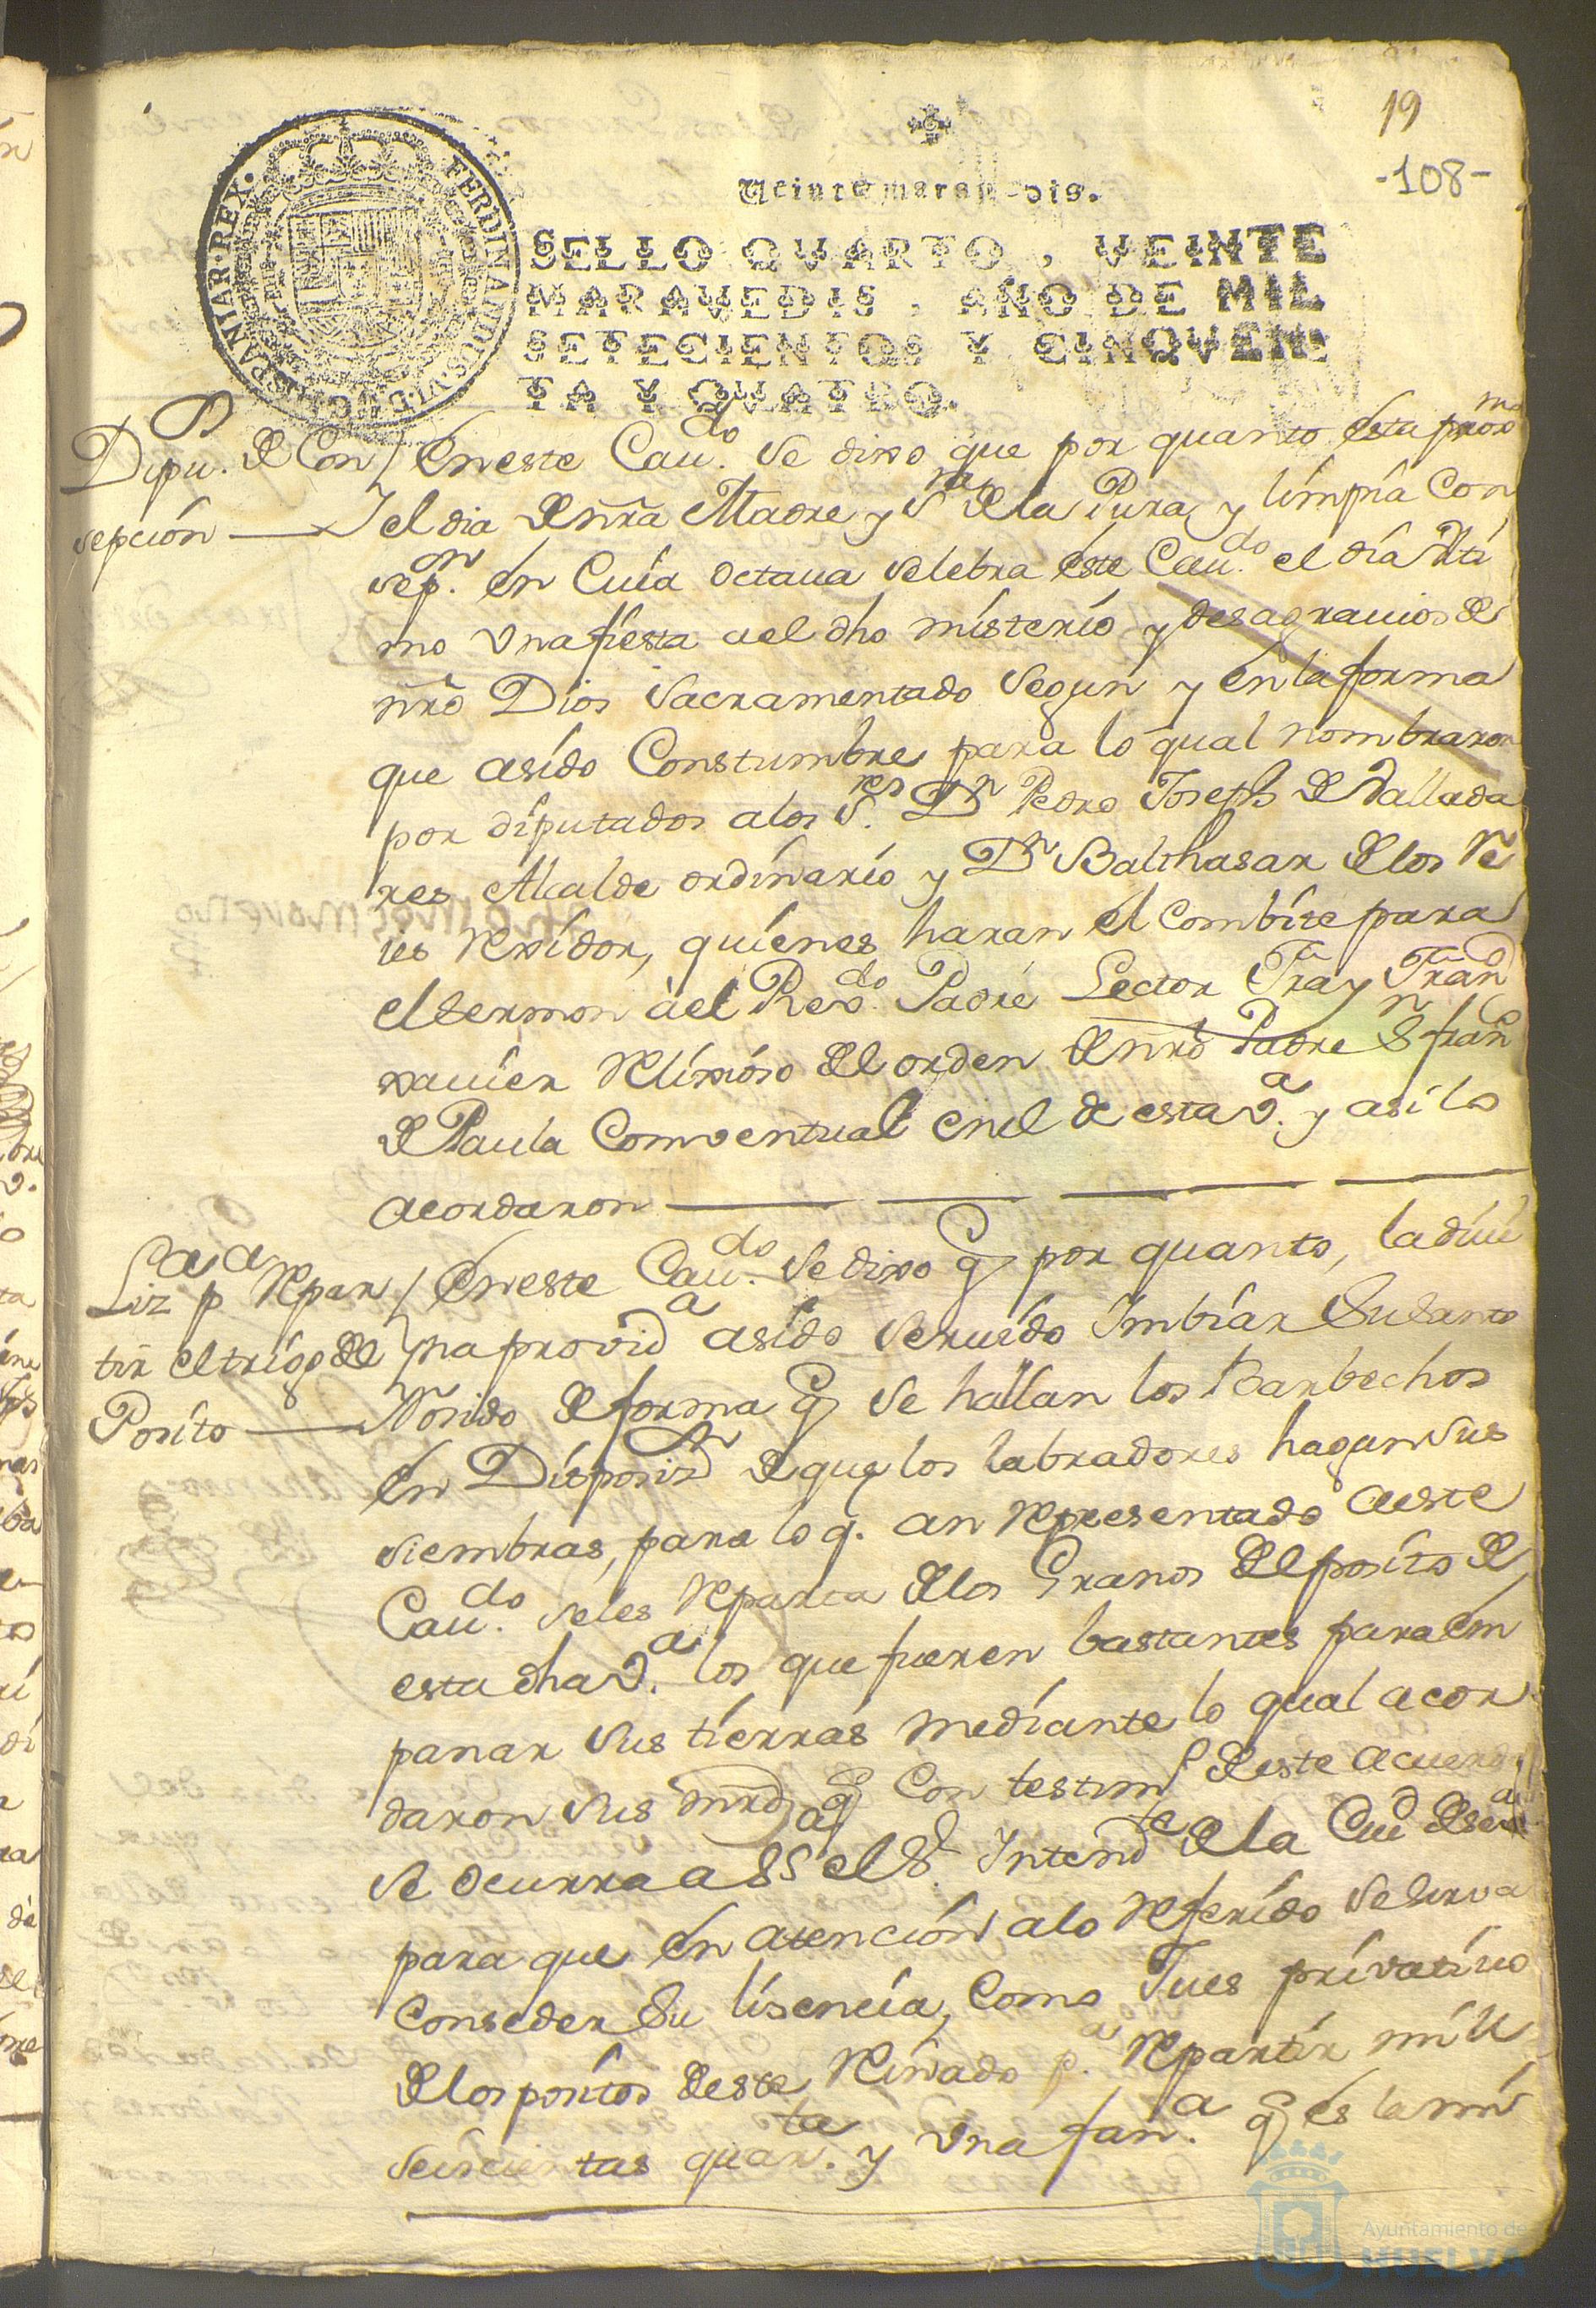 19
-108-
Veinte maravedis.
SELLO QVARTO, VEINTE
MARAVEDIS, AÑO DE MIL
SETECIENTOS Y CINQVEN
TA Y QVATRO.
FERDINANDUS·VI·D·G·HISPANIAR·REX·
Dipu. de Con
sepcion
En este Caudo. se dixo que por quanto esta proxmo
el dia de nra Madre y Sra de la Pura y limpia Con
sepn. en Cuia octaua selebra este Caudo. el dia Ulti
mo Una fiesta a el dho misterio y desagrauios de
nro Dios Sacramentado segun y en la forma
que asido Constumbre para lo qual nombraron
por diputados a los Sres. Dn Pedro Joseph de Vallada
res Alcalde ordinario y Dn Balthasar de los Re
ies Rexidor, quienes haran el Combite para
el sermon a el Revdo. Padre Lector Fray Franco
xauier Relixioso del orden de nro Padre Sn franco
de Paula Comventual en el de esta Va. y asi lo
acordaron
Liza pa Repar
tir el trigo del
Posito
En este Caudo. se dixo q por quanto, la diui
na provida asido seruido Imbiar Su Santo
Rosido de forma q se hallan los Barbechos
en Disposizn de que los labradores hagan sus
siembras, para lo q. an Representado a este
Caudo. se les Reparta de los Granos del posito de
esta dha Va. los que fueren bastantes para em
panar sus tierras mediante lo qual acor
daron sus mrds q Con testimo de este acuerdo
se ocurra a SSa el Sr. Intendte de la Ciud de Seva
para que en atencion a lo Referido se sirva
Conseder Su lisencia, Como Jues privatiuo
de los positos de este Reinado pa. Repartir mill
seiscientas quarta. y Una fana. q es la mi
Ayuntamiento de
HUELVA